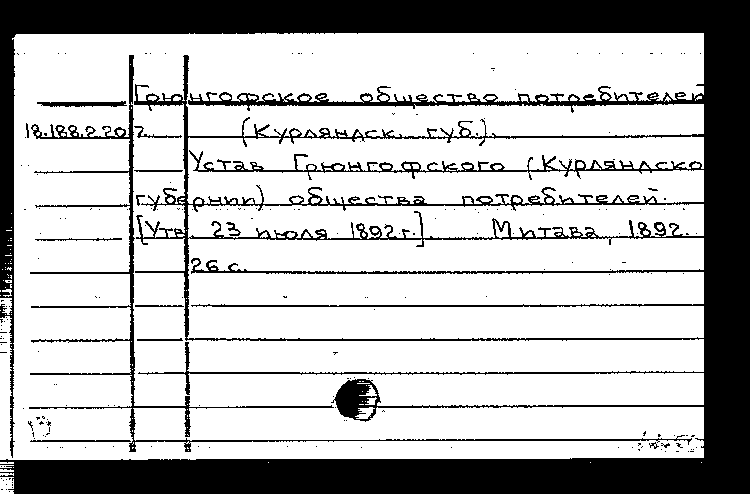 Грюнгофское общество потребителей
18.188.2.207. (Курляндск. губ.).
Устав Грюнгофского (Курляндско
губернии) общества потребителей.
[Утв. 23 июля 1892 г.]. Митава, 1892.
26 с.